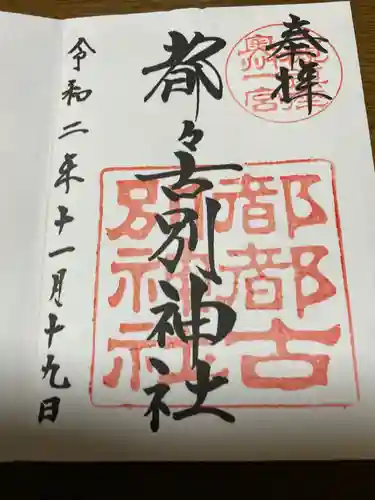 奉拝
都々古別神社
令和二年十一月十九日
奥州一宮
都都古別神社